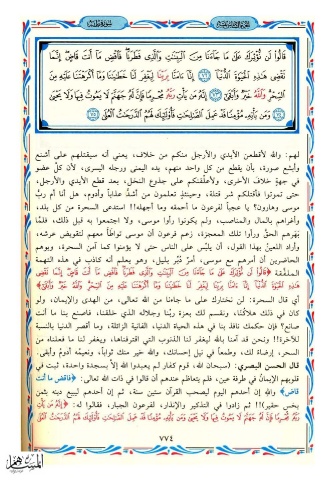 قَالُوا لَن نُّؤْثِرَكَ عَلَىٰ مَا جَاءَنَا مِنَ الْبَيِّنَاتِ وَالَّذِي فَطَرَنَا فَاقْضِ مَا أَنتَ قَاضٍ إِنَّمَا
تَقْضِي هَٰذِهِ الْحَيَاةَ الدُّنْيَا ۝٧٢ إِنَّا آمَنَّا بِرَبِّنَا لِيَغْفِرَ لَنَا خَطَايَانَا وَمَا أَكْرَهْتَنَا عَلَيْهِ مِنَ
السِّحْرِ وَاللَّهُ خَيْرٌ وَأَبْقَىٰ ۝٧٣ إِنَّهُ مَن يَأْتِ رَبَّهُ مُجْرِمًا فَإِنَّ لَهُ جَهَنَّمَ لَا يَمُوتُ فِيهَا وَلَا يَحْيَىٰ
۝٧٤ وَمَن يَأْتِهِ مُؤْمِنًا قَدْ عَمِلَ الصَّالِحَاتِ فَأُولَٰئِكَ لَهُمُ الدَّرَجَاتُ الْعُلَىٰ ۝٧٥
لهم: والله لأقطعن الأيدي والأرجل منكم من خلاف، يعني أنه سيقتلهم على أشنع
وأبشع صورة، بأن يقطع من كل واحد منهم، يده اليمنى ورجله اليسرى، لأن كلَّ عضو
في جهةٍ خلاف الأخرى، ولأعلّقنكم على جذوع النخل، بعد قطع الأيدي والأرجل،
حتى تموتوا فأقتلكم شر قتلة، وحينئذٍ تعلمون من أشدُّ عذاباً وأدوم، هل أنا أم ربُّ
موسى وهارون؟ يا عجباً لفرعون ما أحمقه وما أجهله!! استدعى السحرة من كل بلد،
وأغراهم بالمال والمناصب، ولم يكونوا رأوا موسى، ولا اجتمعوا به قبل ذلك، فلمَّا
بَهَرهم الحقُّ ورأوا تلك المعجزة، زعم فرعون أن موسى تواطأ معهم لتقويض عرشه،
وأراد اللعينُ بهذا القول، أن يلبّس على الناس حتى لا يؤمنوا كما آمن السحرة، ويوهم
الحاضرين أن أمرهم مع موسى، أمرٌ دُبِّر بليل، وهو يعلم أنه كاذب في هذه التهمة
الملفّقة ﴿قَالُوا لَن نُّؤْثِرَكَ عَلَىٰ مَا جَاءَنَا مِنَ الْبَيِّنَاتِ وَالَّذِي فَطَرَنَا فَاقْضِ مَا أَنتَ قَاضٍ إِنَّمَا تَقْضِي
هَٰذِهِ الْحَيَاةَ الدُّنْيَا إِنَّا آمَنَّا بِرَبِّنَا لِيَغْفِرَ لَنَا خَطَايَانَا وَمَا أَكْرَهْتَنَا عَلَيْهِ مِنَ السِّحْرِ وَاللَّهُ خَيْرٌ وَأَبْقَىٰ﴾
أي قال السحرة: لن نختارك على ما جاءنا من الله تعالى، من الهدى والإيمان، ولو
كان في ذلك هلاكُنا، ونقسم لك بعزة ربّنا وجلاله الذي خلقنا، فاصنع بنا ما أنت
صانع؟ فإن حكمك نافذ بنا في هذه الحياة الدنيا، الفانية الزائلة، وما أقصر الدنيا بالنسبة
للآخرة!! ونحن قد آمنا بالله ليغفر لنا الذنوب التي اقترفناها، ويغفر لنا ما فعلناه من
السحر، إرضاءً لك، وطمعاً في نيل إحسانك، والله خير منك ثواباً، ونعيمُه أدومُ وأبقى.
قال الحسن البصري: (سبحان الله، قوم كفار لم يعبدوا الله إلا بسجدة واحدة، ثبت في
قلوبهم الإيمانُ في طرفة عين، فلم يتعاظم عندهم أن قالوا في ذات الله تعالى: ﴿فاقض ما أنت
قاض﴾ والله إن أحدهم اليوم ليصحب القرآن ستين سنة، ثم إن أحدهم ليبيع دينه بثمن
بخس حقير)!! ثم زادوا في التذكير والإنذار، لفرعون الجبار، فقالوا له: ﴿إِنَّهُ مَن يَأْتِ
رَبَّهُ مُجْرِمًا فَإِنَّ لَهُ جَهَنَّمَ لَا يَمُوتُ فِيهَا وَلَا يَحْيَىٰ وَمَن يَأْتِهِ مُؤْمِنًا قَدْ عَمِلَ الصَّالِحَاتِ فَأُولَٰئِكَ لَهُمُ الدَّرَجَاتُ الْعُلَىٰ
٧٧٤